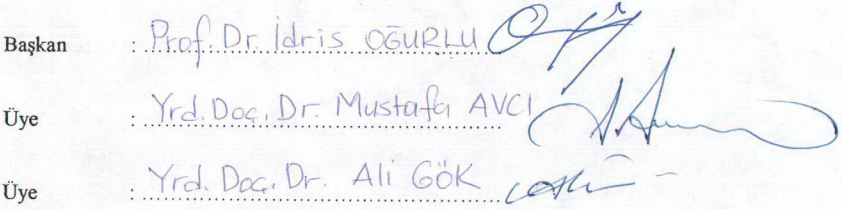 Başkan : Prof. Dr. İdris OĞURLU
Üye : Yrd. Doç. Dr. Mustafa AVCI
Üye : Yrd. Doç. Dr. Ali GÖK